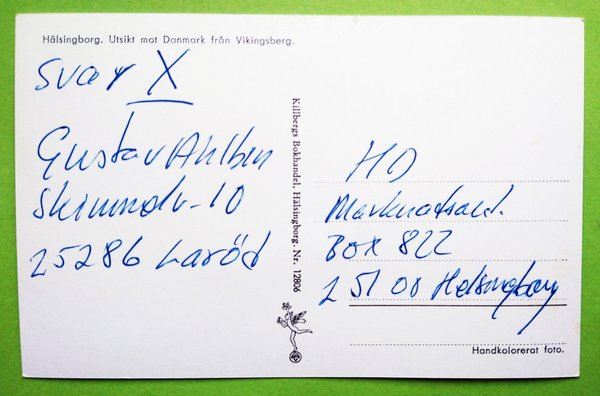 Hälsingborg. Utsikt mot Danmark från Vikingsberg.
Svar X
Gustav Ahlben
10
25286 Laröd
Killbergs Bokhandel, Hälsingborg. Nr. 12806
HD
Marknadsavd.
Box 822
251 00 Helsingborg
Handkolorerat foto.